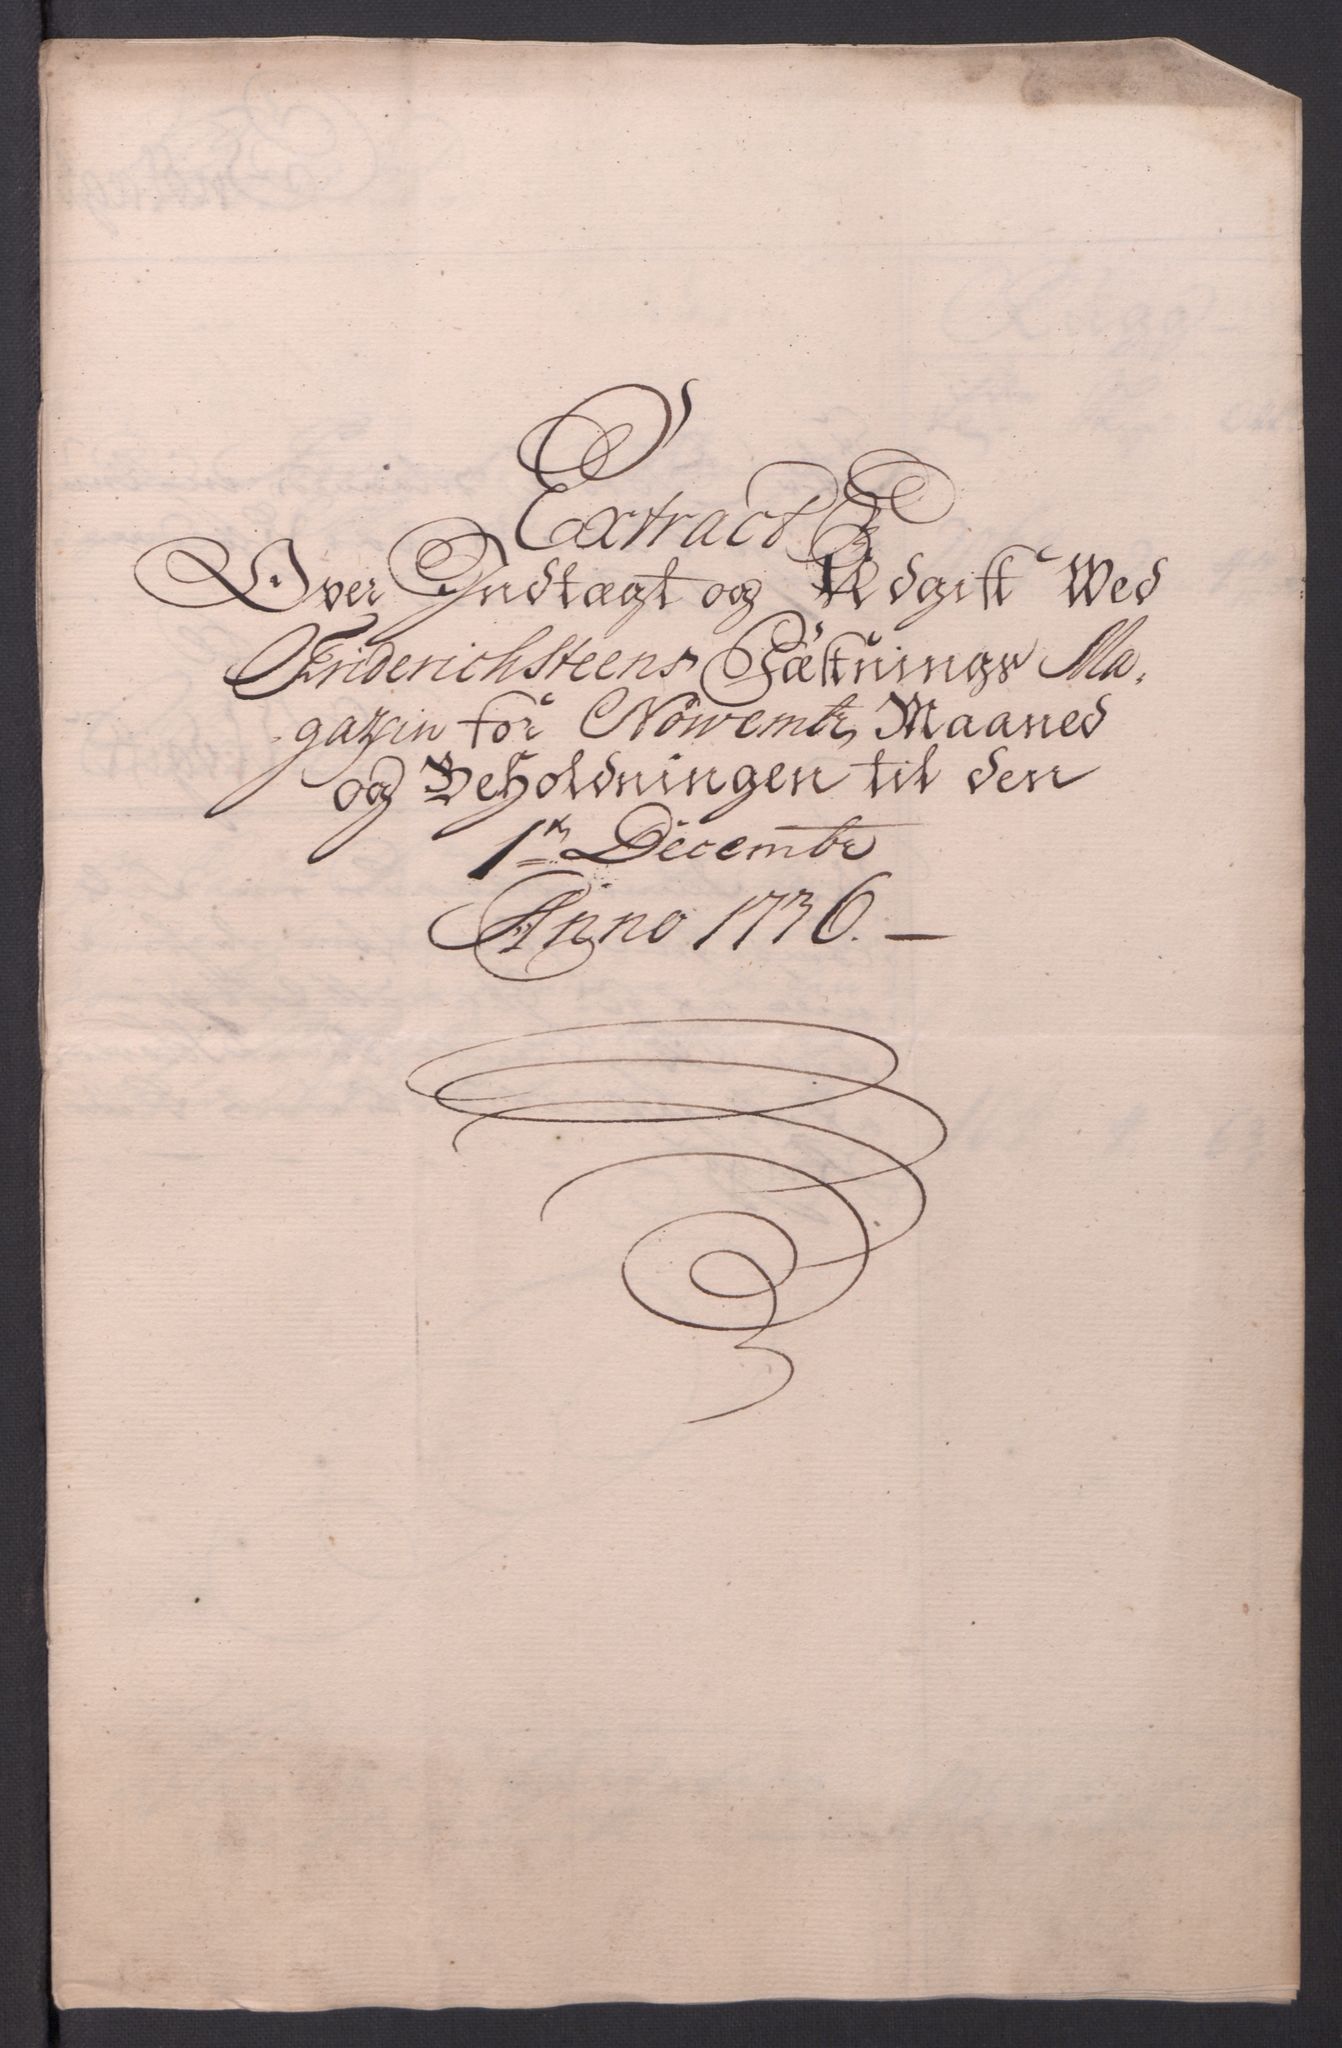 Extract
Over Indtægt og Udgift Wed
Friderichsteens Fæstnings Ma-
gazin for Nowembr Maaned
og Beholdningen til den
1te Decembr
Anno 1736.